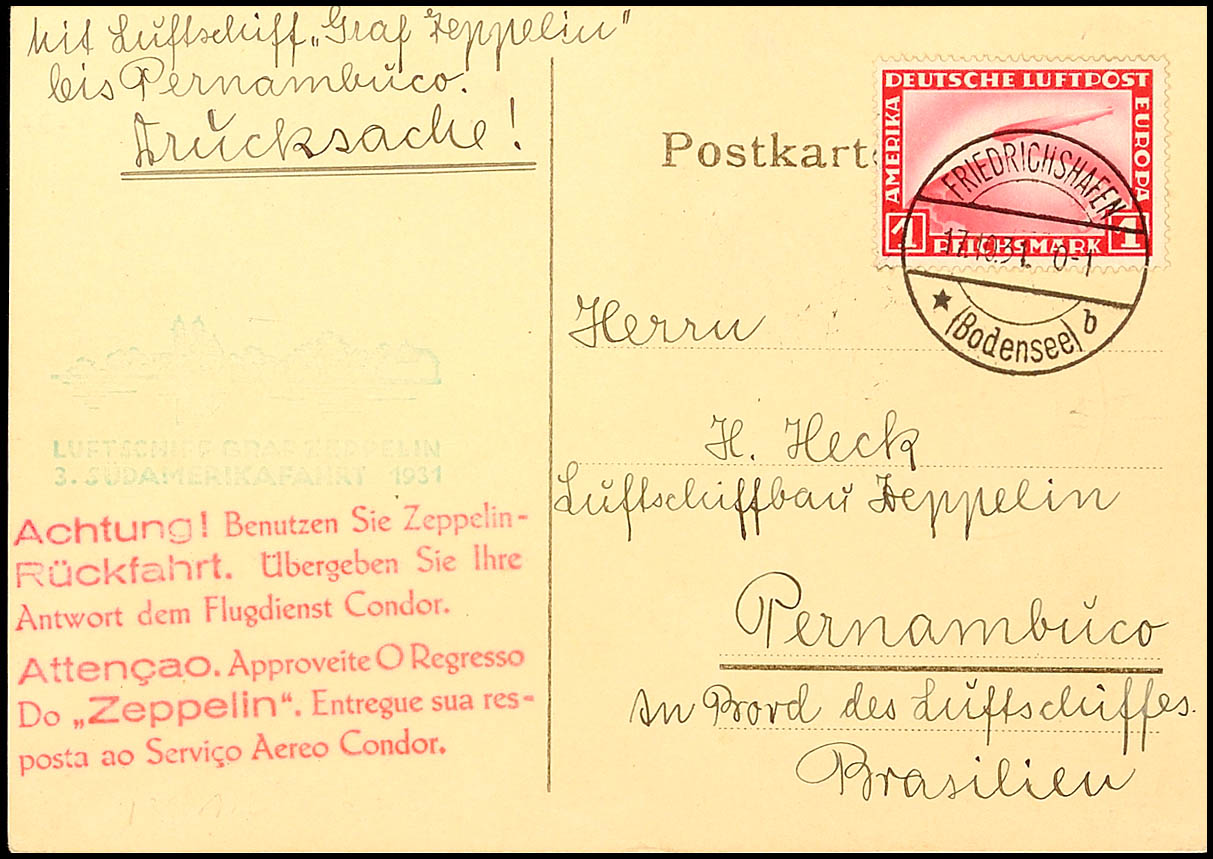 Mit Luftschiff „Graf Zeppelin"
bis Pernambuco.
Drucksache!
Postkarte
DEUTSCHE LUFTPOST
AMERIKA
EUROPA
1 REICHSMARK 1
FRIEDRICHSHAFEN
17.10.31. 0-1
★ (Bodensee) b
Herrn
H. Heck
Luftschiffbau Zeppelin
Pernambuco
An Bord des Luftschiffes.
Brasilien
LUFTSCHIFF GRAF ZEPPELIN
3. SÜDAMERIKAFAHRT 1931
Achtung! Benutzen Sie Zeppelin-
Rückfahrt. Übergeben Sie Ihre
Antwort dem Flugdienst Condor.
Attençao. Approveite O Regresso
Do „Zeppelin“. Entregue sua res-
posta ao Serviço Aereo Condor.